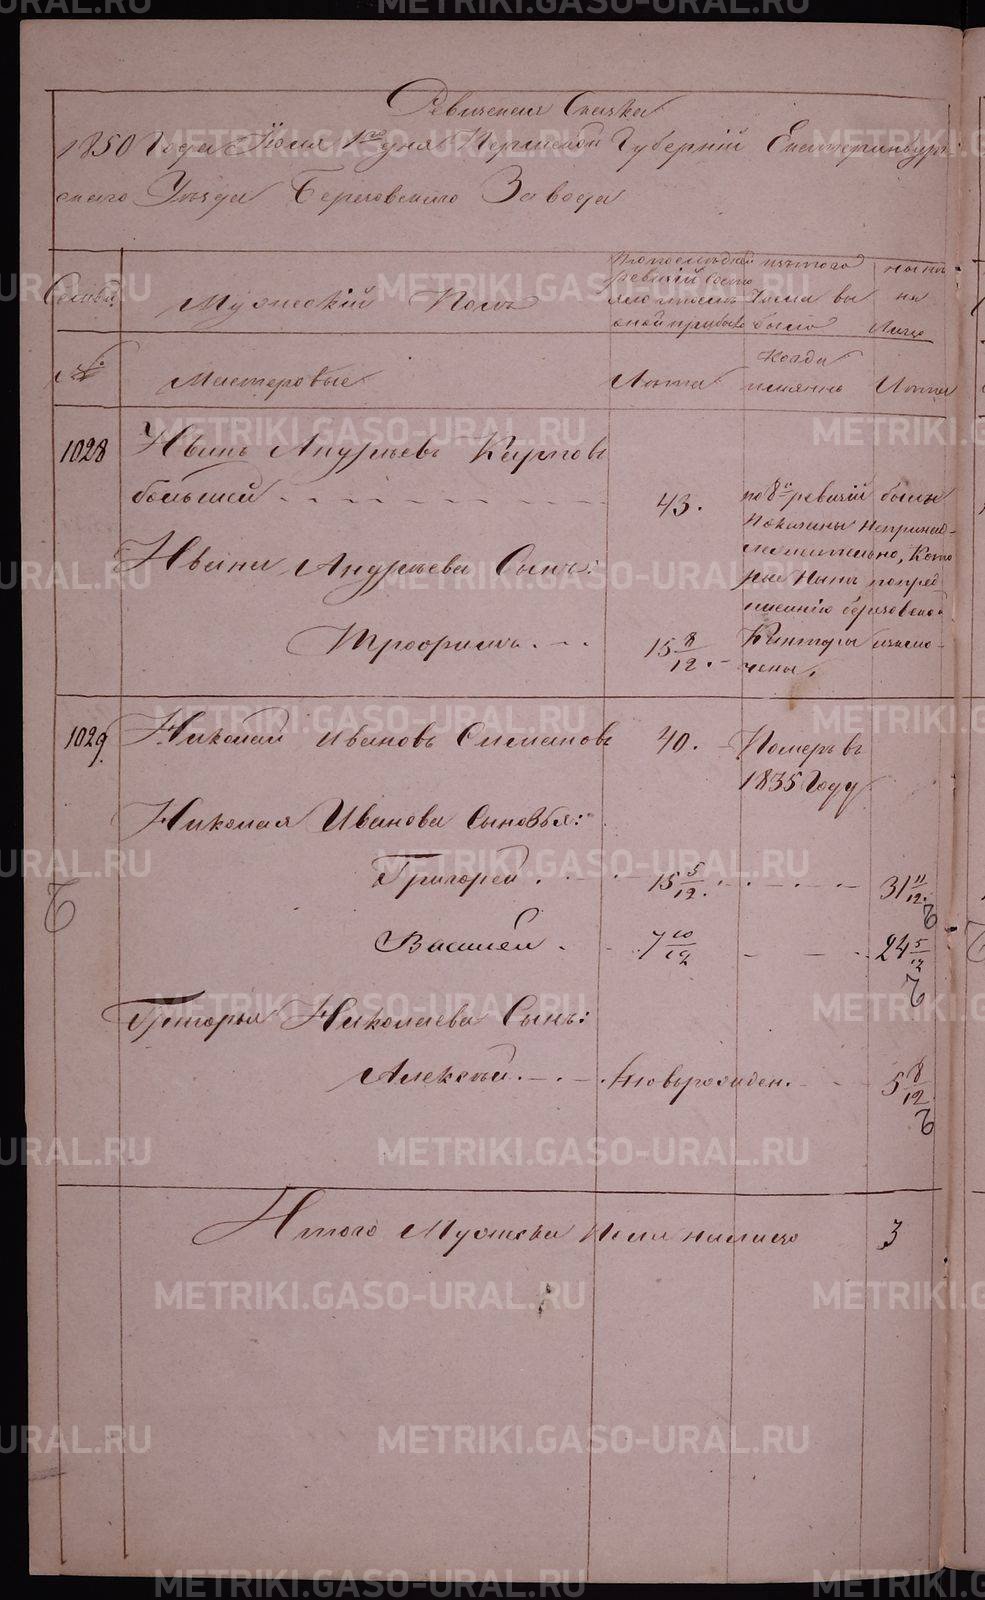 Ревизская Сказка
1850 Года Июля 1го дня Пермской Губернiй Екатеринбург
скаго Уезда Березовскаго Завода
Семьи
Мужескiй Полъ
По последней
ревизiй состо
яло и после
оной прибыло
изъ того
числа вы
было
ныне
на
Лицо
№
Мастеровые
Лета
Когда
имянно
Лета
1028
Иванъ Андреевъ Карпов
большей
43.
по 8й ревизiй были
показаны неправи-
Ивана Андреева Сынъ:
тельно, Кото
рые ныне по пред
писанiю березовской
Трофимъ.
15 8/12.
Канторы исклю-
чены.
1029
Николай Ивановъ Симановъ
40.
Померъ въ
1835 Году
Николая Иванова Сыновья:
Григорей
15 5/12.
31 11/12.
Василей
7 10/12
24 5/12
Григорья Николаева Сынъ:
Алексей
Новорожден.
5 8/12
Итого Мужеска пола налицо
3
METRIKI.GASO-URAL.RU